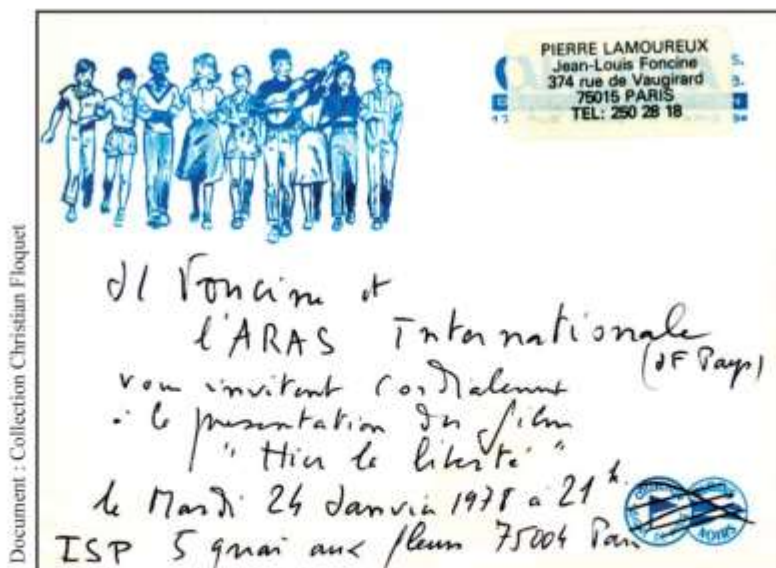 Document : Collection Christian Floquet
PIERRE LAMOUREUX
Jean-Louis Foncine
374 rue de Vaugirard
75015 PARIS
TEL: 250 28 18
Jl Foncine et
l'ARAS Internationale
(JF Pays)
vous invitent cordialement
à la présentation du film
"Hier la liberté"
le Mardi 24 Janvier 1978 à 21h.
ISP 5 quai aux fleurs 75004 Paris
NOIRS